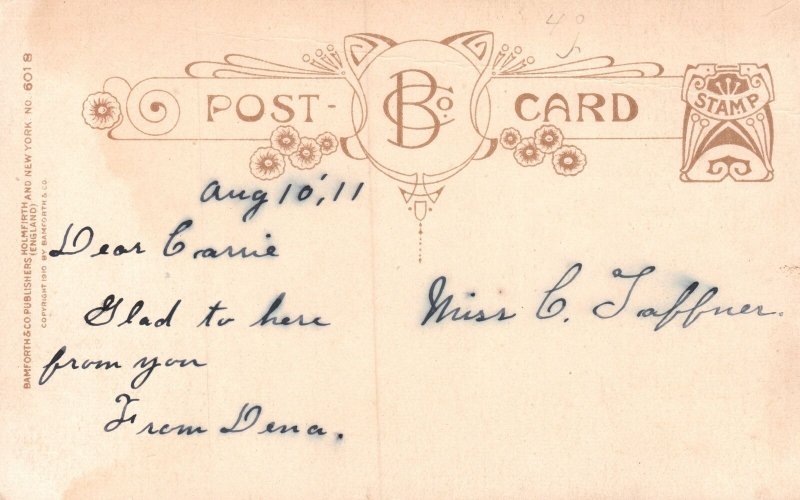 POST-CARD
BCo.
STAMP
BAMFORTH & CO. PUBLISHERS HOLMFIRTH AND NEW YORK. NO. 6018
(ENGLAND)
COPYRIGHT 1910 BY BAMFORTH & CO.
Aug 10, '11
Dear Carrie
Glad to here
from you
From Dena.
Miss C. Taffner.